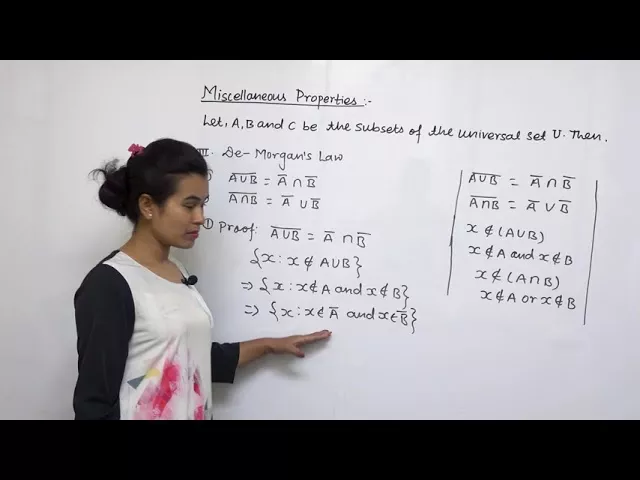 Miscellaneous Properties:-
Let, A, B and C be the subsets of the universal set U. Then.
III. De-Morgan's Law
A̅∪̅B̅ = A̅ ∩ B̅
A̅∩̅B̅ = A̅ ∪ B̅
① Proof: A̅∪̅B̅ = A̅ ∩ B̅
{x : x ∉ A∪B}
⇒ {x : x ∉ A and x ∉ B}
⇒ {x : x ∈ A̅ and x ∈ B̅}
A̅∪̅B̅ = A̅ ∩ B̅
A̅∩̅B̅ = A̅ ∪ B̅
x ∉ (A∪B)
x ∉ A and x ∉ B
x ∉ (A∩B)
x ∉ A or x ∉ B